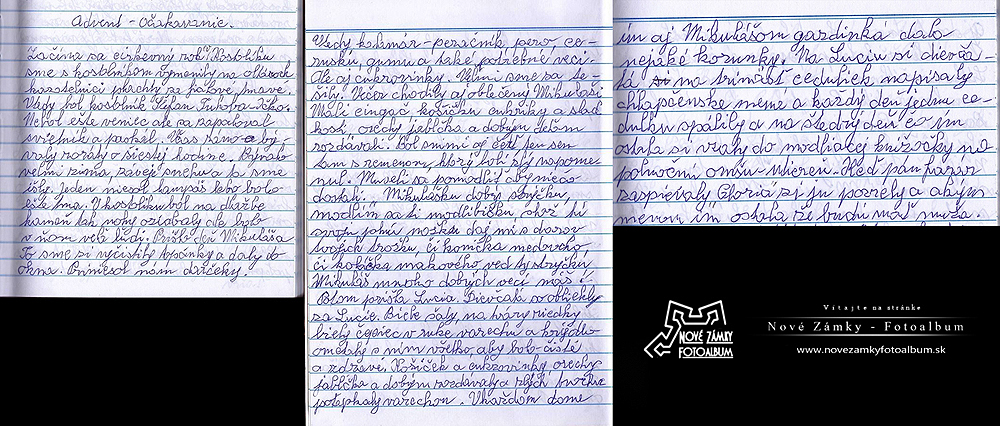 Advent - Očakávanie.
Začína sa cirkevný rok. Kostolíku
sme s kostolníkom vymenily na oltároch
kazateľnici plachty za fialové, tmavé.
Vtedy bol kostolník Štefan
Nebol ešte veniec ale sa zapaloval
svietnik a paškál. Včas ráno bý-
valy roráty o šiestej hodine. Bývala
veľmi zima, zaveje snehu a ja sme
išly. Jeden niesol lampáš lebo bola
ešte tma. V kostolíku bol na dlažbe
kameň tak nohy oziabaly ale bolo
v ňom veľa ľudí. Prišlo deň Mikuláša
To sme si vyčistily topánky a daly do
okna. Priniesol nám darčeky.
Vtedy kalamár - peračník, pero ce-
ruzku, gumu a také potrebné veci.
Ale aj cukrovinky. Veľmi sme sa te-
šily. Večer chodily aj oblečený Mikuláši
Mali cingáč košíčku cukríky a slad
kosti, orechy jabĺčka a dobrým deťom
rozdávali. Bol s nimi aj čert ten sen
tam s remenom, ktorý boli zlý napome
nul. Museli sa pomodliť aby niečo
dostali. "Mikulášku dobrý strýčku,
modlím sa ti modlitbičku, otvor ti
svoju plnú nošku daj mi z darov
tvojich trošku, či koníčka medového
či koláčka makového, veď ty strýčku
Mikuláš mnoho dobrých vecí máš!
Potom prišla Lucia. Dievčatá sa obliekly
za Lucie. Biele šaty, na tvary riedky
biely čepiec v ruke, varechu a krýdlo
ometaly s ním všetko, aby bolo čisté
a zdravé. Košíček a cukrovinky, orechy
jabĺčka a dobým rozdávaly a zlých trochu
potľapkaly varechou. V každom dome
im aj Mikulášom gazdinká dala
nejaké korunky. Na Luciu si dievča-
tá si na trinásť ceduliek napísaly
chlapčenské mená a každý deň jednu ce-
dulku spálily a na štedrý deň čo im
ostala si vzaly do modliacej knižočky na
polnočnú omšu - utiereň. Keď pán farár
zaspievaly Gloria si ju pozrely a akým
menom im ostala že budú mať muža.
NOVÉ ZÁMKY
FOTOALBUM
Vitajte na stránke
Nové Zámky - Fotoalbum
www.novezamkyfotoalbum.sk